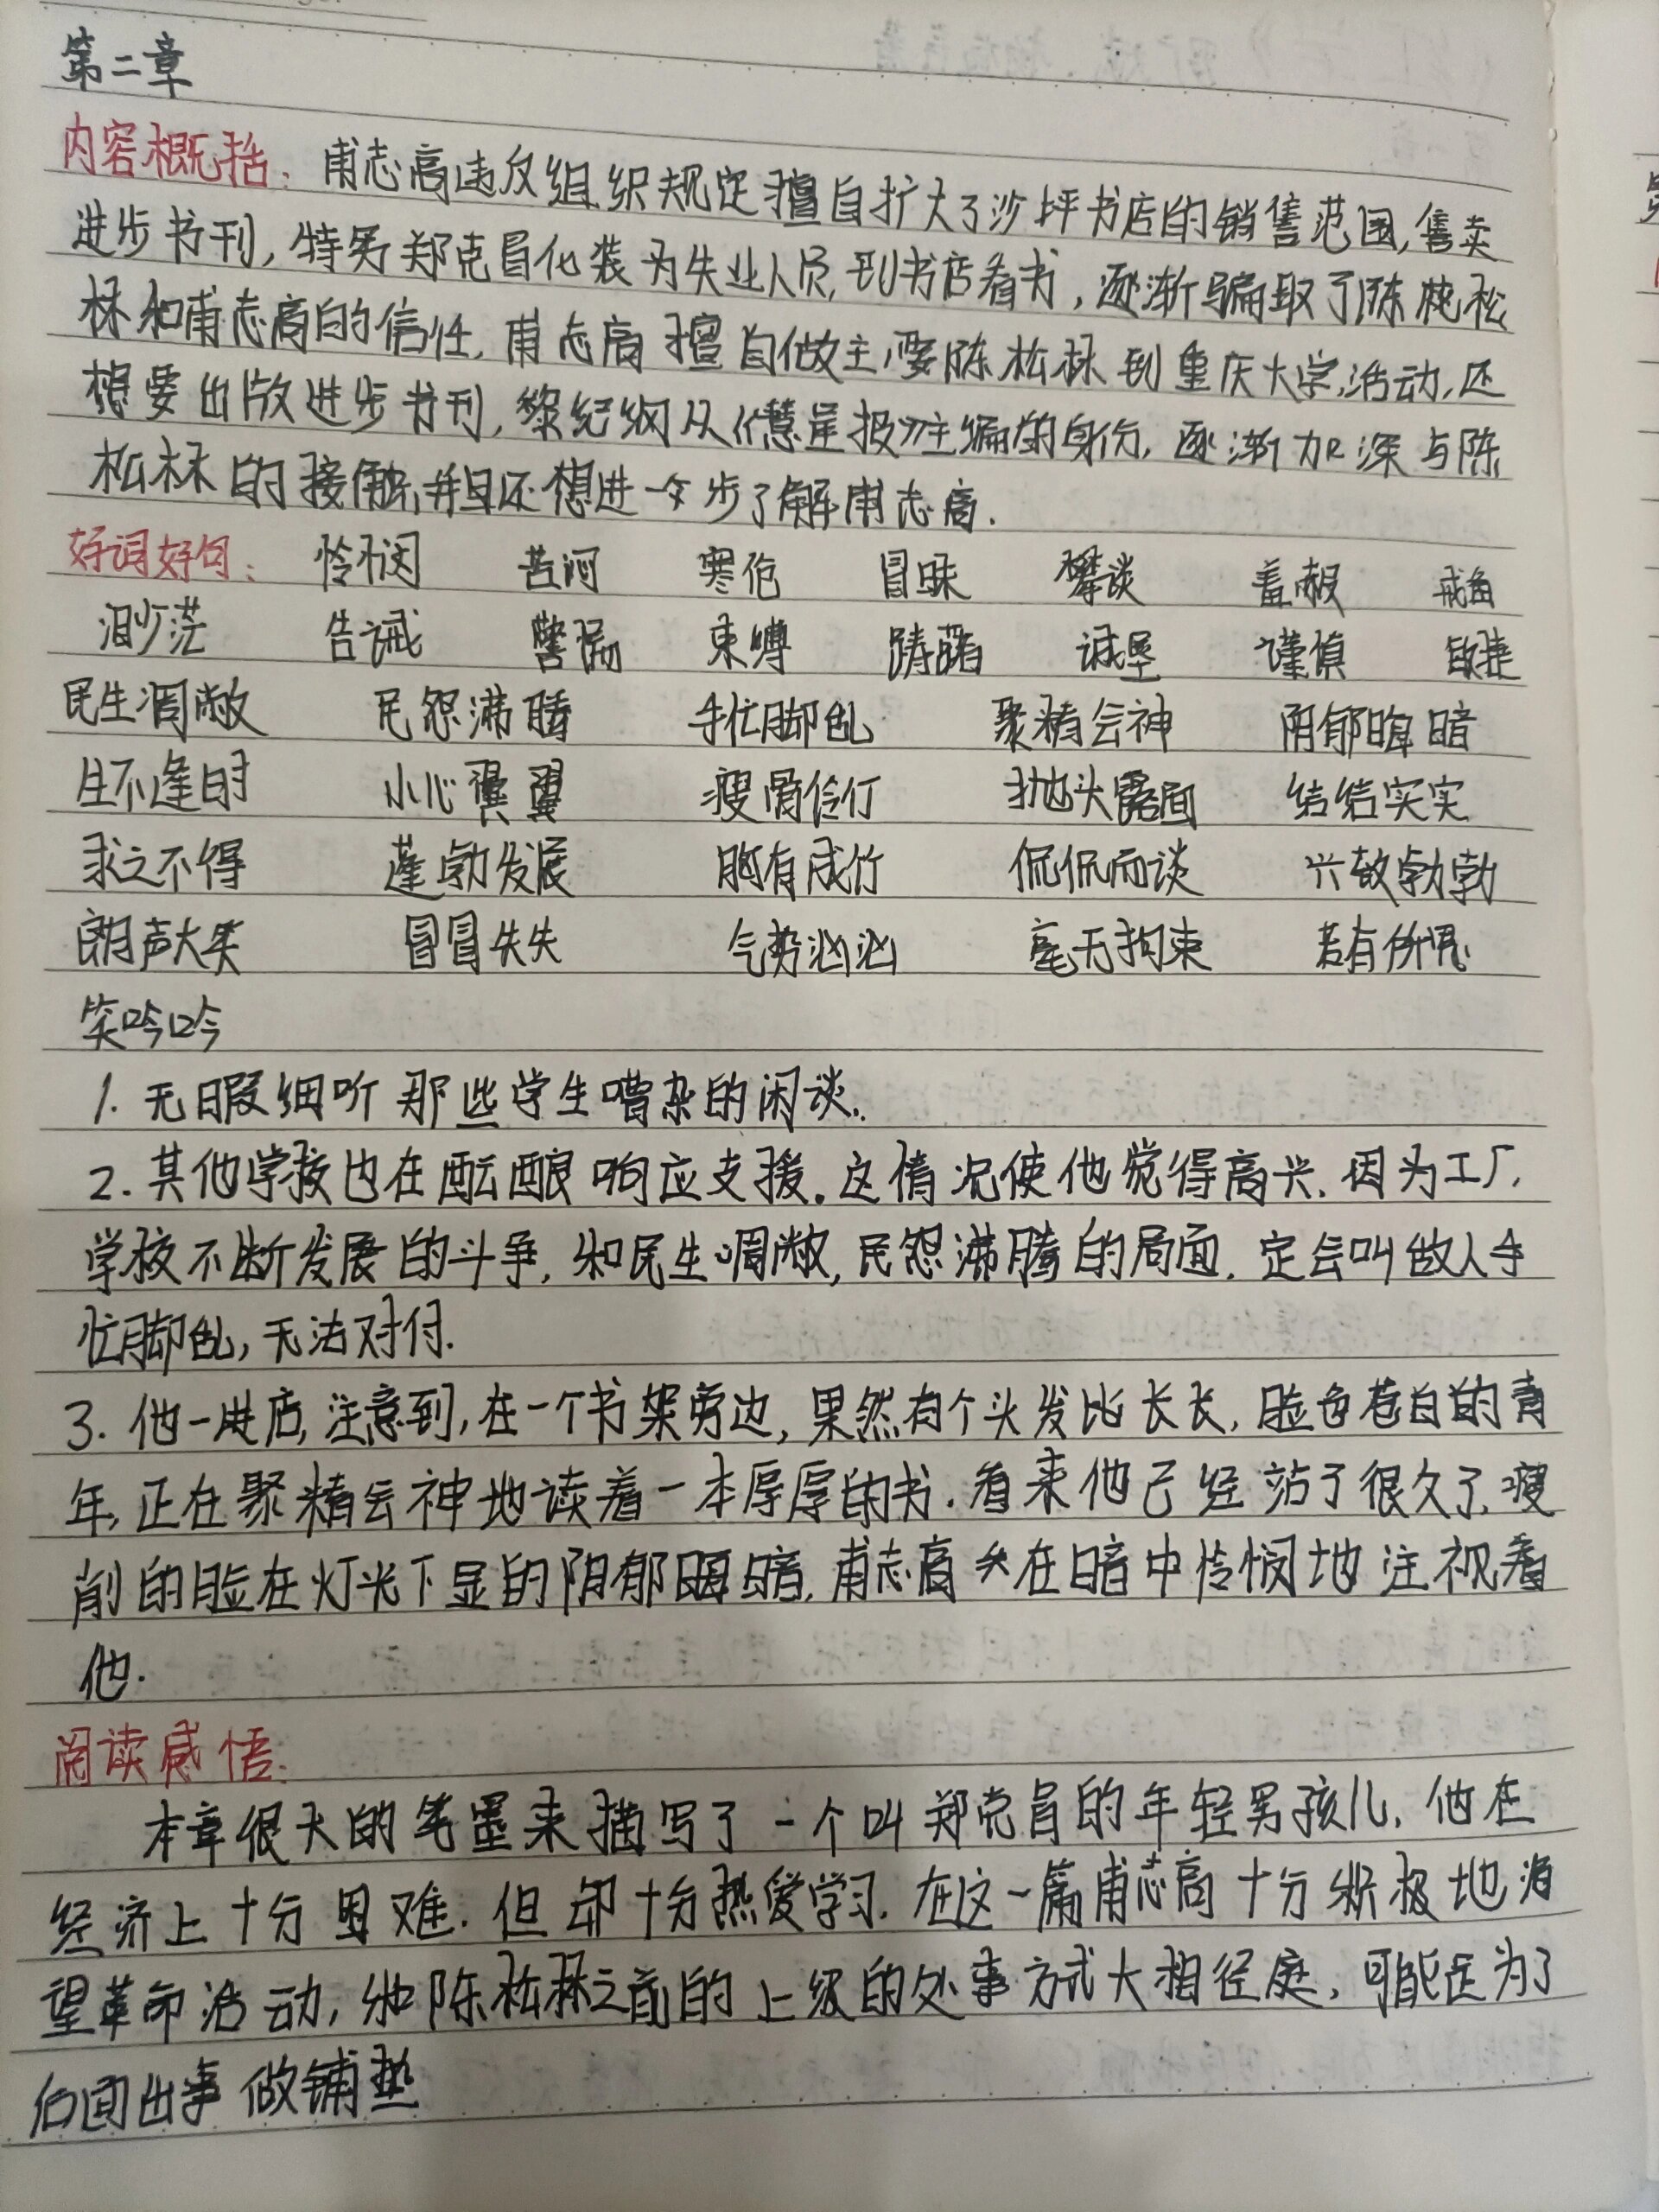 第二章
内容概括：甫志高违反组织规定擅自扩大了沙坪书店的销售范围,售卖
进步书刊,特务郑克昌化装为失业人员,到书店看书,逐渐骗取了陈松
林和甫志高的信任,甫志高擅自做主,要陈松林到重庆大学活动,还
想要出版进步书刊,黎纪纲从《彗星报》主编的身份,逐渐加深与陈
松林的接触,并且还想进一步了解甫志高.
好词好句： 怜悯 苦河 寒伧 冒昧 攀谈 羞赧 戒备
渺茫 告诫 警惕 束缚 踌躇 诚垦 谨慎 敏捷
民生凋敝 民怨沸腾 手忙脚乱 聚精会神 阴郁晦暗
生不逢时 小心翼翼 瘦骨伶仃 抛头露面 结结实实
求之不得 蓬勃发展 胸有成竹 侃侃而谈 兴致勃勃
朗声大笑 冒冒失失 气势汹汹 毫无拘束 若有所思
笑吟吟
1. 无暇细听那些学生嘈杂的闲谈.
2. 其他学校也在酝酿响应支援。这情况使他觉得高兴.因为工厂,
学校不断发展的斗争,和民生凋敝,民怨沸腾的局面.定会叫做人手
忙脚乱,无法对付.
3. 他一进店,注意到,在一个书架旁边,果然有个头发比长长,脸色苍白的青
年,正在聚精会神地读着一本厚厚的书.看来他已经站了很久了,瘦
削的脸在灯光下显的阴郁晦暗,甫志高在暗中怜悯地注视着
他.
阅读感悟:
本章很大的笔墨来描写了一个叫郑克昌的年轻男孩儿,他在
经济上十分困难.但却十分热爱学习.在这一篇甫志高十分积极地渴
望革命活动,和陈松林之前的上级的处事方式大相径庭,可能是为了
后面出事做铺垫